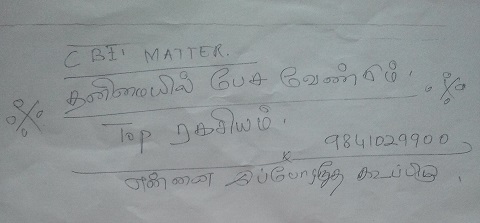 CBI' MATTER.
% தனிமையில் பேச வேண்டும். %
Top ரகசியம்.
9841029900
என்னை இப்போதே கூப்பிடு.